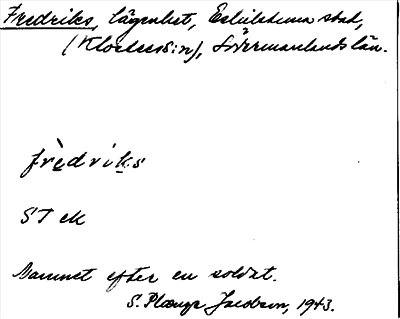 Fredriks, lägenhet, Eskilstuna stad,
(Klosters s:n), Södermanlands län.
frèdriks
ST
Namnet efter en soldat.
S. Jacobson, 1943.